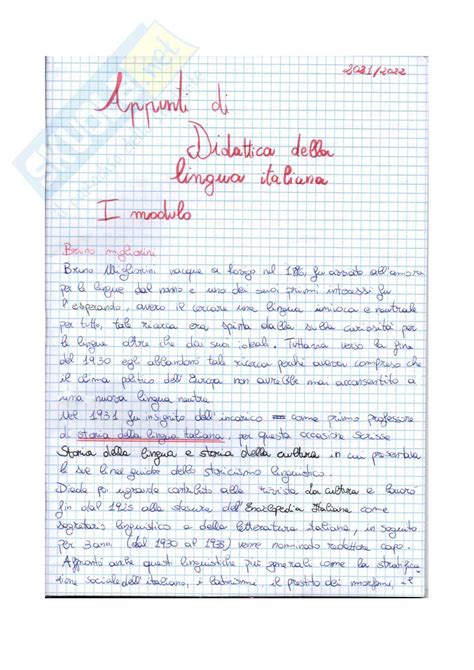 2021/2022
Appunti di
Didattica della
lingua italiana
I modulo
Bruno Migliorini
Bruno Migliorini nacque a Rovigo nel 1896, fu assato all'amore
per le lingue dal nonno e uno dei suoi primi interessi fu
l'esperando, ovvero il cercare una lingua univoca e neutrale
per tutto, tale ricerca era spinta dalla sulla curiosità per
le lingue oltre che dai suoi ideali. Tuttavia verso la fine
del 1930 egli abbandonò tale ricerca perché aveva compreso che
il clima politico dell'Europa non avrebbe mai acconsentito a
una nuova lingua neutra.
Nel 1931 fu insignito dell'incarico come primo professore
di storia della lingua italiana, per questa occasione scrisse
Storia della lingua e storia della cultura in cui presentava
le sue linee guida dello storicismo linguistico.
Diede poi un grande contributo alla rivista La cultura e lavorò
fin dal 1925 alla stesura dell'Enciclopedia Italiana come
segretario linguistico e della letteratura italiana, in seguito
per 3 anni (dal 1930 al 1933) venne nominato redattore capo.
Affrontò anche questi linguistiche più generali come la stratifica
zione sociale dell'italiano, i latinismi, il prestito dei morfemi, il